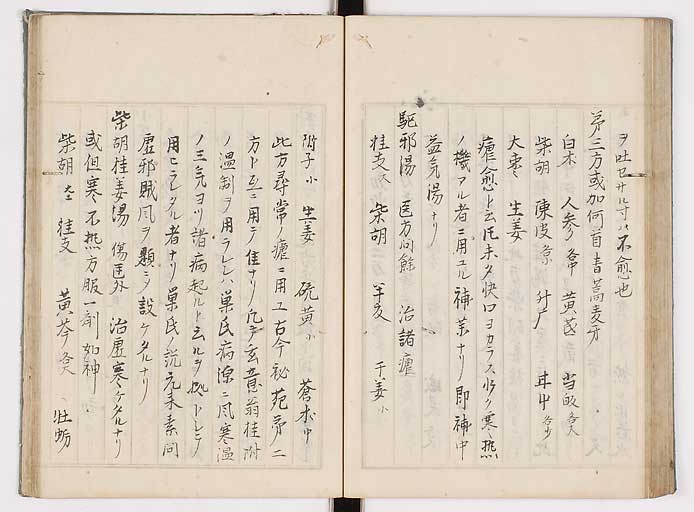 ヲ吐セサル寸ハ不愈也
第三方或加何首青蒿麦芽
白朮 人参各中 黄芪 当皈各大
柴胡 陳皮 升广 甘中各少
大棗 生姜
瘧愈ト云氏未タ快口ヨカラス少ク寒熱
ノ機アル者ニ用ユル補薬ナリ即補中
益気湯ナリ
駆邪湯 医方問餘 治諸瘧
桂支 柴胡 半夏 干姜小
附子小 生姜 硫黄小 蒼朮中
此方尋常ノ瘧ニ用ユ古今秘苑第二
方ト互ニ用テ佳ナリ凡テ玄意翁桂附
ノ温剤ヲ用ラレシハ巣氏病源ニ風寒湿
ノ三気ヨリ諸病起ルト云ルヲ拠トシテ
用ヒラレタル者ナリ巣氏ノ説元来素問
虚邪賊風ヲ題ニシ設ケタルナリ
柴胡桂姜湯 傷 外 治虚寒ケタルナリ
或但寒不熱方服一剤如神
柴胡大 桂支 黄芩各大 牡蛎